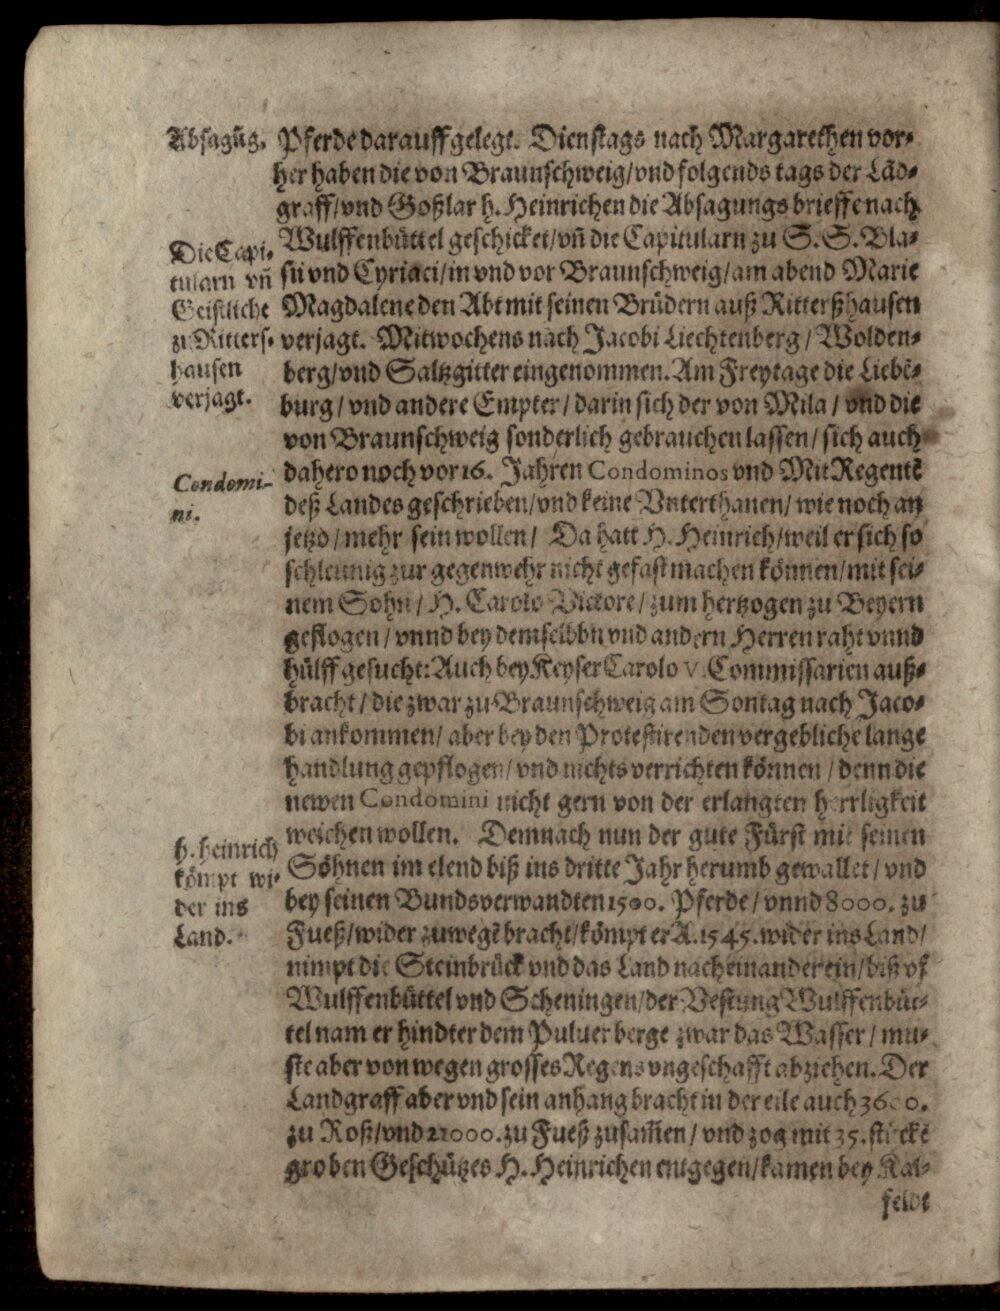 Absagũg.
Pferde darauff gelegt. Dienstags nach Margarethen vor-
her haben die von Braunschweig/vnd folgends tags der Lãd-
graff/vnd Goßlar h. Heinrichen die Absagungs brieffe nach
Wulffenbüttel geschicket/vñ die Capitularn zu S. S. Bla-
sii vnd Cyriaci/in vnd vor Braunschweig/am abend Marie
Magdalene den Abt mit seinen Brüdern auß Ritterßhausen
verjagt. Mitwochens nach Jacobi Liechtenberg/ Wolden-
berg/vnd Saltzgitter eingenommen. Am Freytage die Liebẽ-
burg/ vnd andere Empter/ darin sich der von Mila/ vnd die
von Braunschweig sonderlich gebrauchen lassen/ sich auch
dahero noch vor 16. Jahren Condominos vnd Mit Regentẽ
deß Landes geschrieben/vnd keine Vnterthanen/ wie noch an
jetzd/ mehr sein wollen/ Da hatt H. Heinrich/weil er sich so
schleunig zur gegenwehr nicht gefast machen können/mit sei-
nem Sohn/ H. Carolo Victore/ zum hertzogen zu Beyern
geflogen/ vnnd bey demselbbn vnd andern Herren raht vnnd
hülff gesucht: Auch bey Keyser Carolo V. Commissarien auß-
bracht/ die zwar zu Braunschweig am Sontag nach Jaco-
bi ankommen/ aber bey den Protestirenden vergebliche lange
handlung gepflogen/ vnd nichts verrichten können/ denn die
newen Condomini nicht gern von der erlangten herrligkeit
weichen wollen. Demnach nun der gute Fürst mit seinen
Söhnen im elend biß ins dritte Jahr herumb gewallet/ vnd
bey seinen Bundsverwandten 1500. Pferde/ vnnd 8000. zu
Fueß/wider zuwegẽ bracht/kömpt er A. 1545. wider ins Land/
nimpt die Steinbrück vnd das Land nacheinander ein/biß vf
Wulffenbüttel vnd Scheningen/der Vestung Wulffenbüt-
tel nam er hindter dem Puluer berge zwar das Wasser/ mu-
ste aber von wegen grosses Regens vngeschafft abziehen. Der
Landgraff aber vnd sein anhang bracht in der eile auch 3600.
zu Roß/vnd 21000. zu Fueß zusam̃en/ vnd zog mit 35. stückẽ
groben Geschützes H. Heinrichen entgegen/kamen bey Kal-
feldt
Die Capi-
tularn vñ
Geistliche
zu Ritters-
hausen
verjagt.
Condomi-
ni.
h. heinrich
kömpt wi-
der ins
Land.